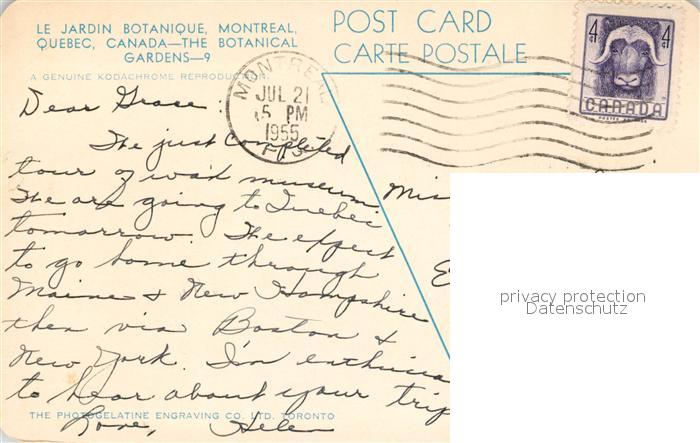 LE JARDIN BOTANIQUE, MONTREAL,
QUEBEC, CANADA—THE BOTANICAL
GARDENS—9
A GENUINE KODACHROME REPRODUCTION
POST CARD
CARTE POSTALE
MONTREAL
JUL 21
5 PM
1955
4¢ 4¢
CANADA
Dear Grace:
We just completed
tour of wax museum
We are going to Quebec
tomorrow. We expect
to go home through
Maine & New Hampshire
then via Boston &
New York. I'm
to hear about your trip
Love, Helen
Mis
E
THE PHOTOGELATINE ENGRAVING CO. LTD. TORONTO
privacy protection
Datenschutz